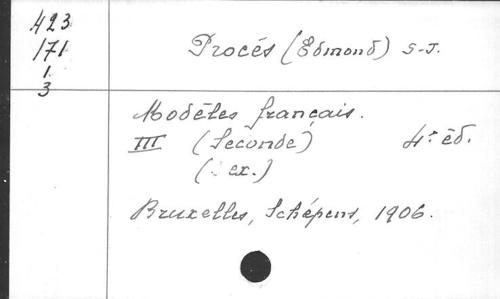 423
171
1
3
Procés (Edmond) S-J.
Modèles français.
III (Seconde) 4e éd.
( ex.)
Bruxelles, Schépens, 1906.